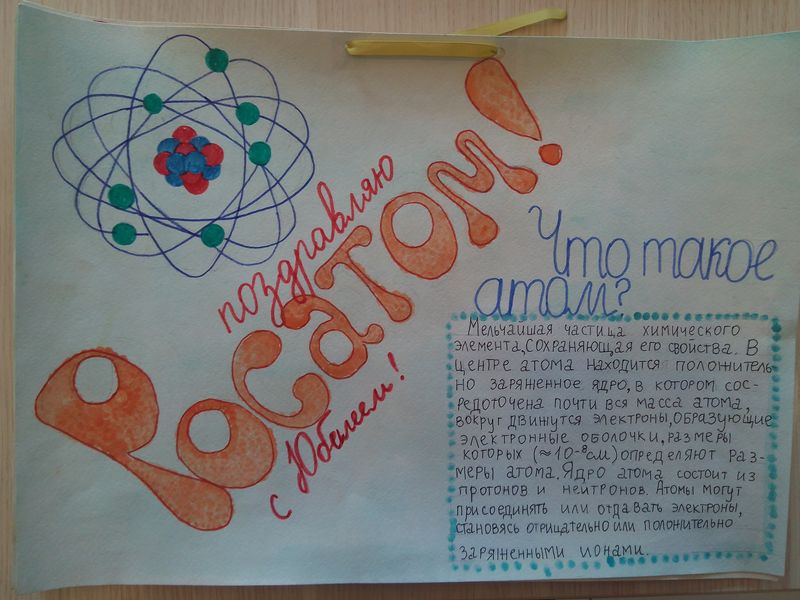 поздравляю
Росатом!
с Юбилеем!
Что такое
атом?
Мельчайшая частица химического
элемента, сохраняющая его свойства. В
центре атома находится положитель
но заряженное ядро, в котором сос-
редоточена почти вся масса атома,
вокруг движутся электроны, образующие
электронные оболочки, размеры
которых (≈10⁻⁸см) определяют раз-
меры атома. Ядро атома состоит из
протонов и нейтронов. Атомы могут
присоединять или отдавать электроны,
становясь отрицательно или положительно
заряженными ионами.